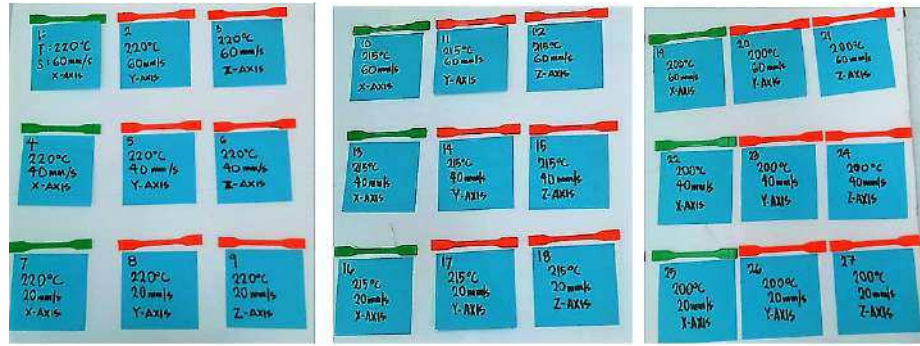 1.
T: 220°C
S: 60mm/s
X-AXIS
2
220°C
60mm/s
Y-AXIS
3
220°C
60mm/s
Z-AXIS
4
220°C
40mm/s
X-AXIS
5
220°C
40mm/s
Y-AXIS
6
220°C
40mm/s
Z-AXIS
7
220°C
20mm/s
X-AXIS
8
220°C
20mm/s
Y-AXIS
9
220°C
20mm/s
Z-AXIS
10
215°C
60mm/s
X-AXIS
11
215°C
60mm/s
Y-AXIS
12
215°C
60mm/s
Z-AXIS
13
215°C
40mm/s
X-AXIS
14
215°C
40mm/s
Y-AXIS
15
215°C
40mm/s
Z-AXIS
16
215°C
20mm/s
X-AXIS
17
215°C
20mm/s
Y-AXIS
18
215°C
20mm/s
Z-AXIS
19
200°C
60mm/s
X-AXIS
20
200°C
60mm/s
Y-AXIS
21
200°C
60mm/s
Z-AXIS
22
200°C
40mm/s
X-AXIS
23
200°C
40mm/s
Y-AXIS
24
200°C
40mm/s
Z-AXIS
25
200°C
20mm/s
X-AXIS
26
200°C
20mm/s
Y-AXIS
27
200°C
20mm/s
Z-AXIS